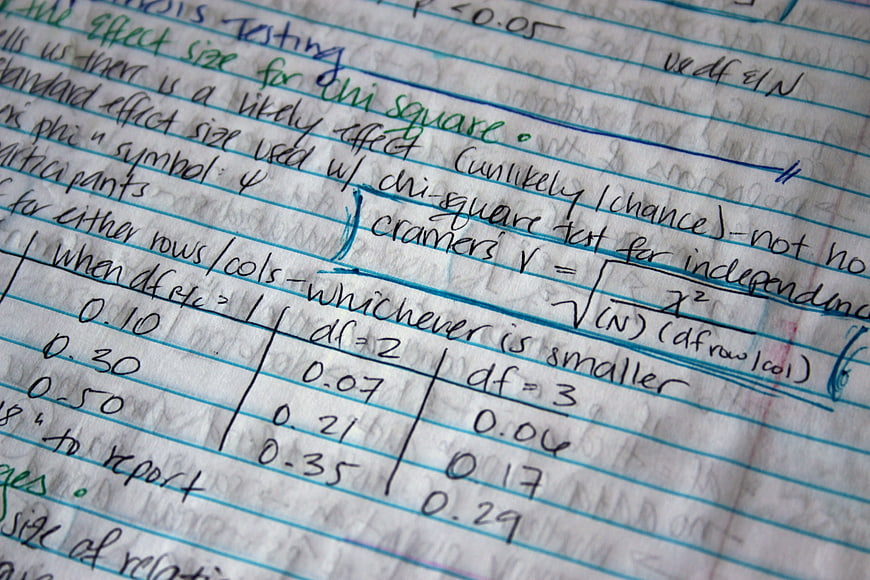 p < 0.05
Testing
use df & N
the effect size for chi square.
ells us there is a likely effect (unlikely / chance) - not ho
tandard effect size used w/ chi-square test for independenc
phi " symbol: φ
cramers V = √ χ² / (N) (df row/col)
articipants
for either rows/cols - whichever is smaller
when df r/c = 1 df = 2 df = 3
0.10 0.07 0.06
0.30 0.21 0.17
0.50 0.35 0.29
" to report
ges.
size of relati